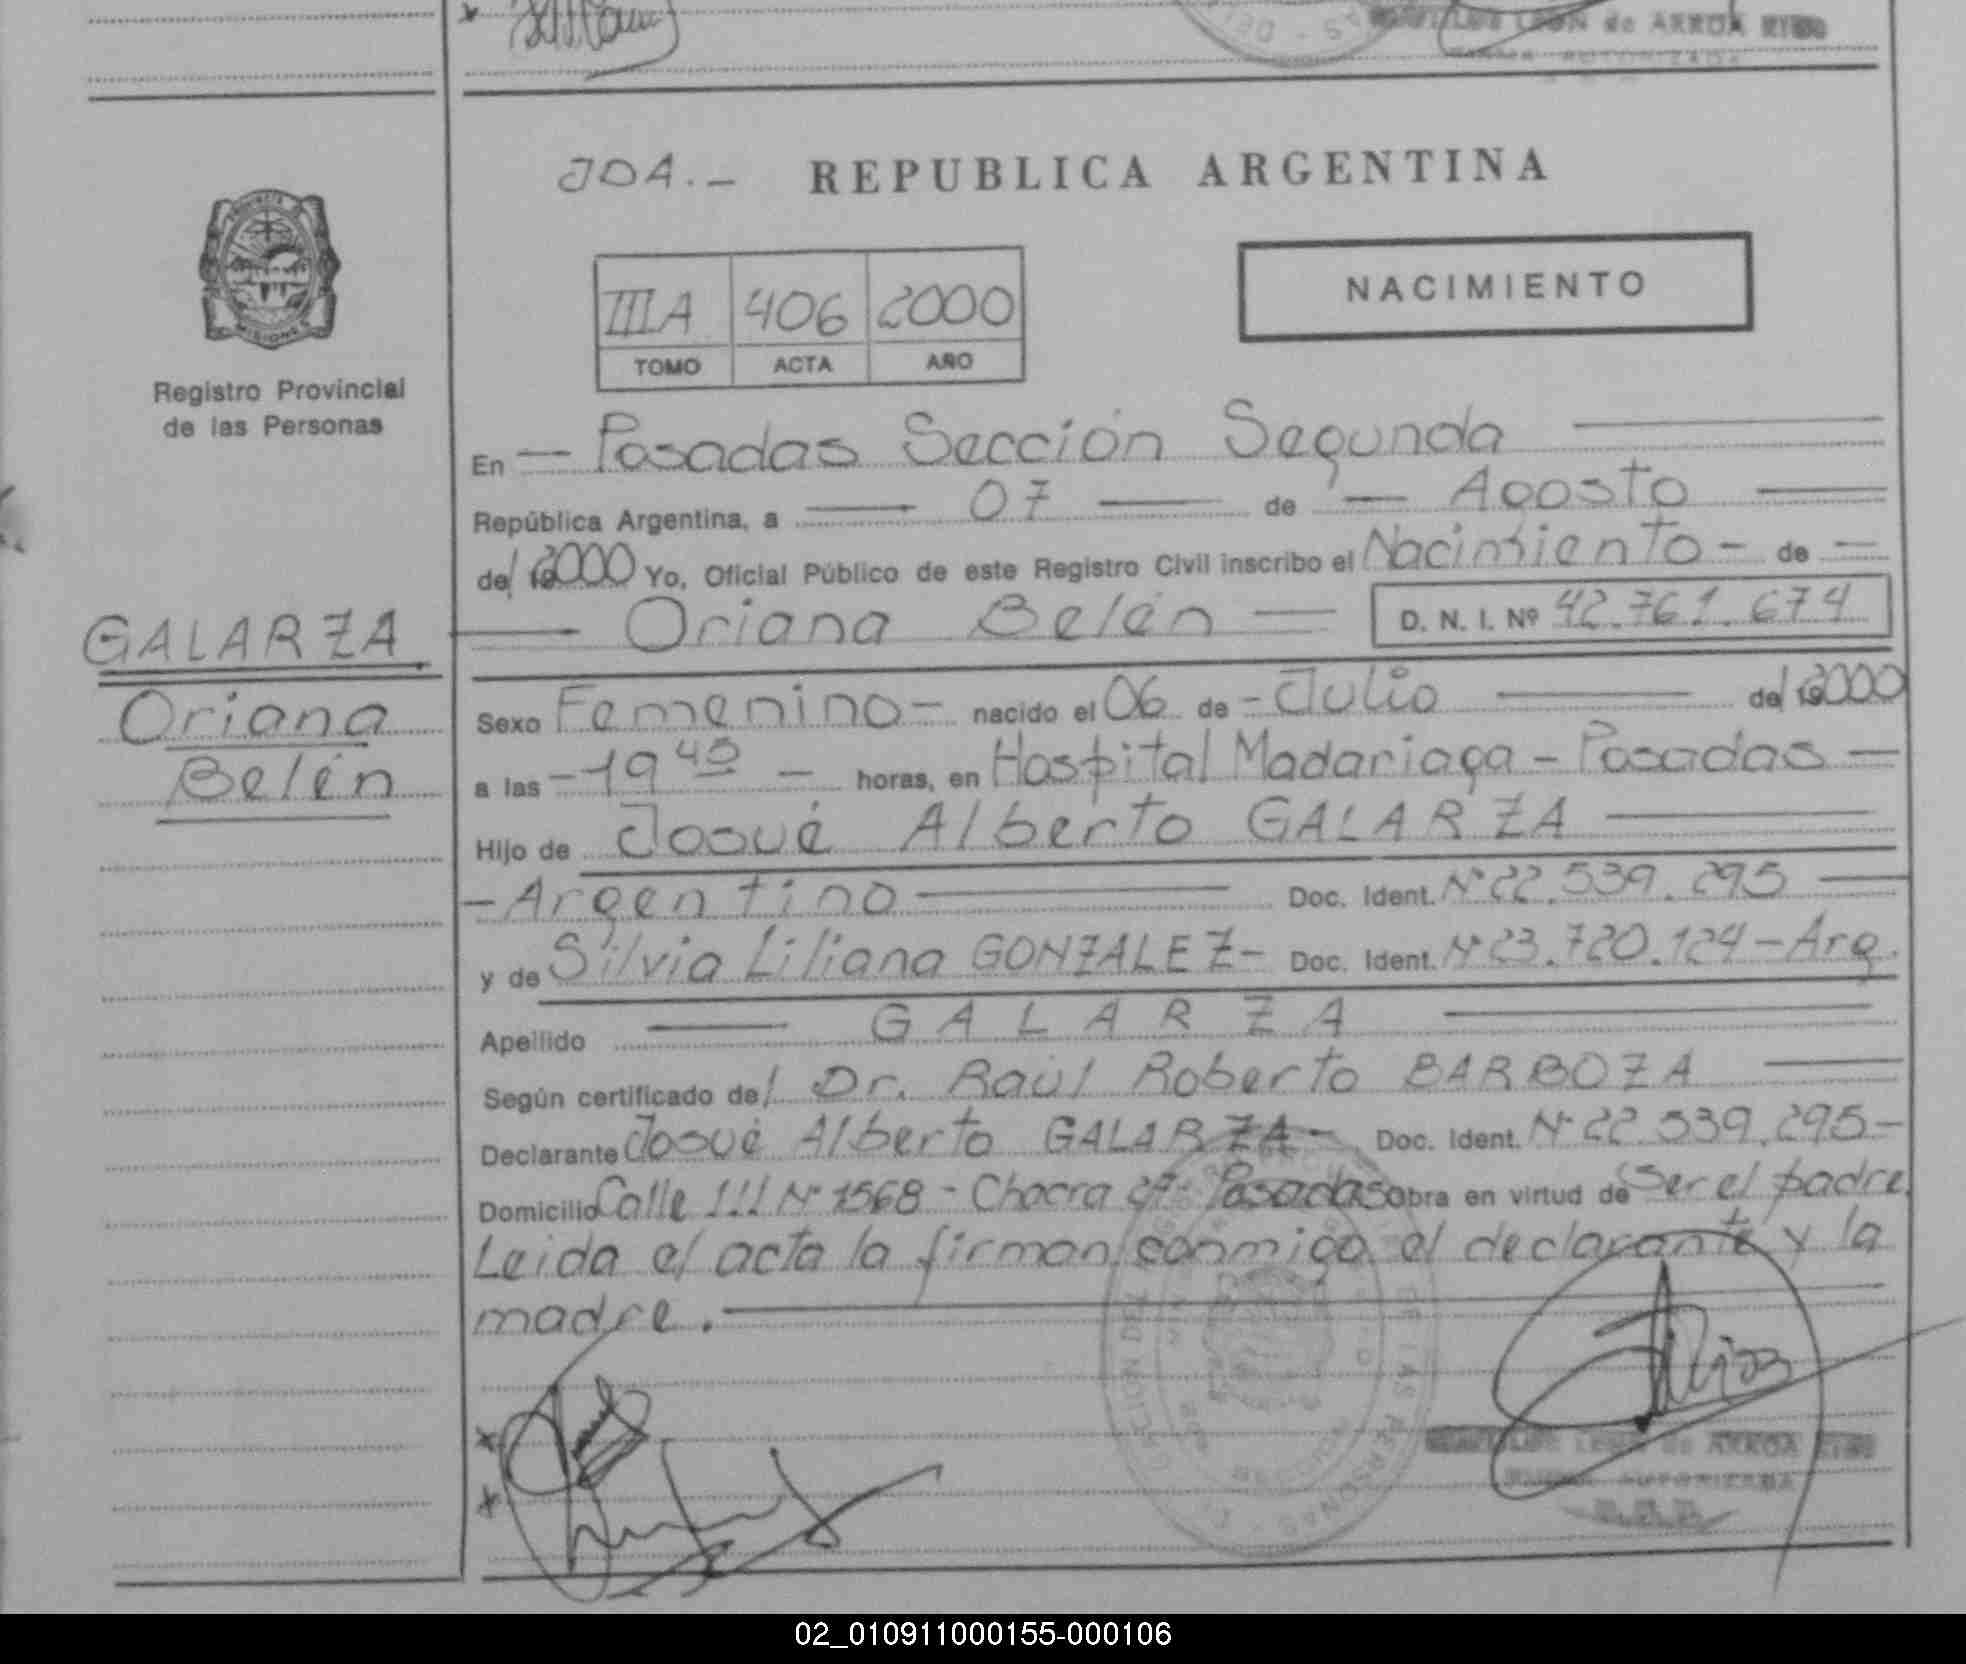 LEON de ARROA RIOS
FIRMA AUTORIZADA
JDA.- REPUBLICA ARGENTINA
PROVINCIA
MISIONES
Registro Provincial
de las Personas
IIIA 406 2000
TOMO ACTA AÑO
NACIMIENTO
En - Posadas Sección Segunda
República Argentina, a 07 de - Agosto
del 2000 Yo, Oficial Público de este Registro Civil inscribo el Nacimiento - de -
Oriana Belén D. N. I. Nº 42.761.674
GALARZA
Oriana
Belén
Sexo Femenino - nacido el 06 de - Julio del 2000
a las - 19 45 - horas, en Hospital Madariaga - Posadas -
Hijo de Josué Alberto GALARZA
- Argentino Doc. Ident. Nº 22.539.295
y de Silvia Liliana GONZALEZ - Doc. Ident. Nº 23.720.124 - Arg.
Apellido GALARZA
Según certificado del Dr. Raúl Roberto BARBOZA
Declarante Josué Alberto GALARZA - Doc. Ident. Nº 22.539.295 -
Domicilio Calle 111 Nº 1568 - Chacra 27 - Posadas obra en virtud de Ser el padre.
Leida el acta la firman conmigo el declarante y la
madre.
LEON de ARROA RIOS
FIRMA AUTORIZADA
02_010911000155-000106